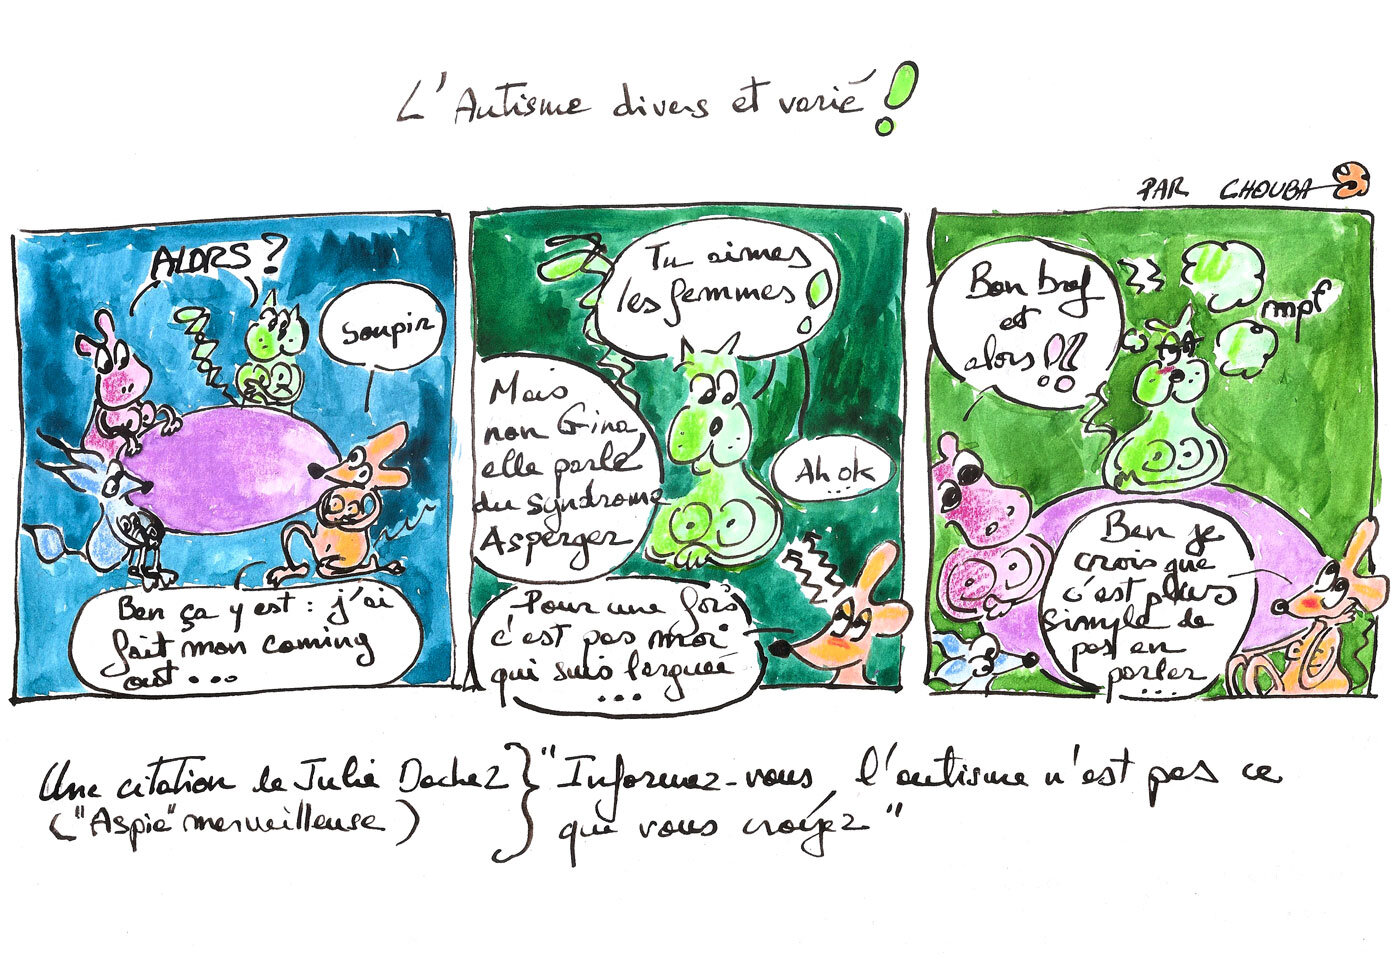 L'Autisme divers et varié !
PAR CHOUBA
ALORS ?
Soupir
Ben ça y est : j'ai
fait mon coming
out...
Tu aimes
les femmes !
Mais
non Gina
elle parle
du syndrome
Asperger
Ah ok
...
Pour une fois
c'est pas moi
qui suis larguée
...
Bon bref
et
alors !?
mpf
Ben je
crois que
c'est plus
simple de
pas en
parler
...
Une citation de Julie Dachez } "Informez-vous, l'autisme n'est pas ce
("Aspie" merveilleuse) que vous croyez"